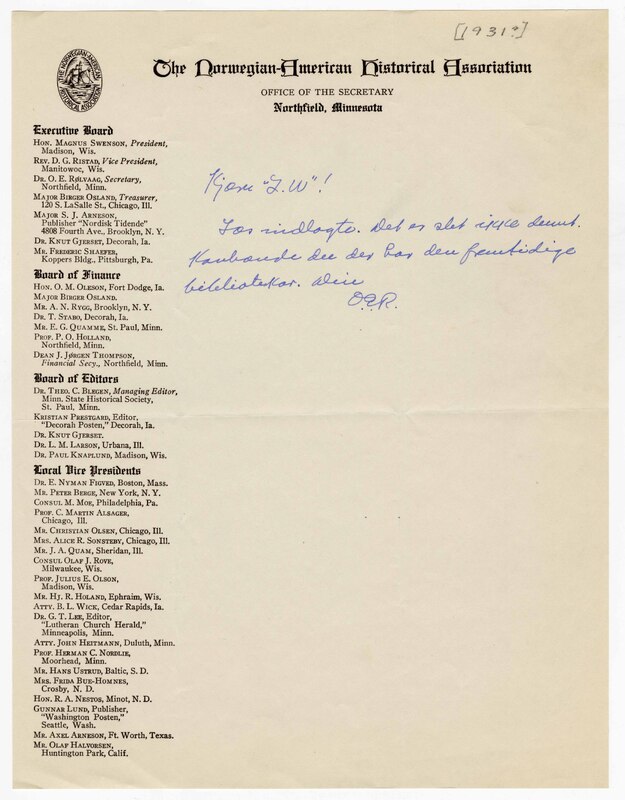 [1931?]
THE NORWEGIAN-AMERICAN HISTORICAL ASSOCIATION
The Norwegian-American Historical Association
OFFICE OF THE SECRETARY
Northfield, Minnesota
Executive Board
HON. MAGNUS SWENSON, President,
Madison, Wis.
REV. D. G. RISTAD, Vice President,
Manitowoc, Wis.
DR. O. E. RØLVAAG, Secretary,
Northfield, Minn.
MAJOR BIRGER OSLAND, Treasurer,
120 S. LaSalle St., Chicago, Ill.
MAJOR S. J. ARNESON,
Publisher "Nordisk Tidende"
4808 Fourth Ave., Brooklyn, N. Y.
DR. KNUT GJERSET, Decorah, Ia.
MR. FREDERIC SHAEFER,
Koppers Bldg., Pittsburgh, Pa.
Board of Finance
HON. O. M. OLESON, Fort Dodge, Ia.
MAJOR BIRGER OSLAND.
MR. A. N. RYGG, Brooklyn, N. Y.
DR. T. STABO, Decorah, Ia.
MR. E. G. QUAMME, St. Paul, Minn.
PROF. P. O. HOLLAND,
Northfield, Minn.
DEAN J. JØRGEN THOMPSON,
Financial Secy., Northfield, Minn.
Board of Editors
DR. THEO. C. BLEGEN, Managing Editor,
Minn. State Historical Society,
St. Paul, Minn.
KRISTIAN PRESTGARD, Editor,
"Decorah Posten," Decorah, Ia.
DR. KNUT GJERSET.
DR. L. M. LARSON, Urbana, Ill.
DR. PAUL KNAPLUND, Madison, Wis.
Local Vice Presidents
DR. E. NYMAN FIGVED, Boston, Mass.
MR. PETER BERGE, New York, N. Y.
CONSUL M. MOE, Philadelphia, Pa.
PROF. C. MARTIN ALSAGER,
Chicago, Ill.
MR. CHRISTIAN OLSEN, Chicago, Ill.
MRS. ALICE R. SONSTEBY, Chicago, Ill.
MR. J. A. QUAM, Sheridan, Ill.
CONSUL OLAF J. ROVE,
Milwaukee, Wis.
PROF. JULIUS E. OLSON,
Madison, Wis.
MR. HJ. R. HOLAND, Ephraim, Wis.
ATTY. B. L. WICK, Cedar Rapids, Ia.
DR. G. T. LEE, Editor,
"Lutheran Church Herald,"
Minneapolis, Minn.
ATTY. JOHN HEITMANN, Duluth, Minn.
PROF. HERMAN C. NORDLIE,
Moorhead, Minn.
MR. HANS USTRUD, Baltic, S. D.
MRS. FRIDA BUE-HOMNES,
Crosby, N. D.
HON. R. A. NESTOS, Minot, N. D.
GUNNAR LUND, Publisher,
"Washington Posten,"
Seattle, Wash.
MR. AXEL ARNESON, Ft. Worth, Texas.
MR. OLAF HALVORSEN,
Huntington Park, Calif.
Kjære !
Læs indlagte. Det er slet ikke dumt.
Kanhænde du der har den fremtidige
bibliotekar. Din
O.E.R.